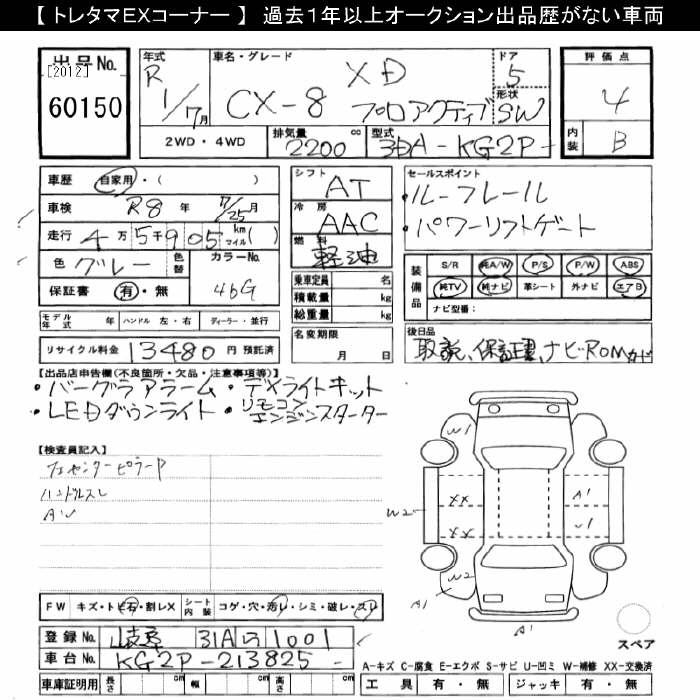 【 トレタマEXコーナー 】 過去1年以上オークション出品歴がない車両
出品No.
[2012]
60150
年式
R
1/7月
車名・グレード
XD
CX-8 プロアクティブ
ドア
5
形状
SW
評価点
4
内装
B
2WD・4WD
排気量
2200cc
型式
3DA-KG2P-
車歴 自家用・( )
車検 R8年 7/25月
走行 4万5千905 km マイル( )
色 グレー 色替
カラーNo.
46G
保証書 有・無
シフト
AT
冷房
AAC
燃料
軽油
乗車定員 名
積載量 kg
総重量 kg
セールスポイント
・ルーフレール
・パワーリフトゲート
装備品
S/R 純A/W P/S P/W ABS
純TV 純ナビ 革シート 外ナビ エアB
ナビ型番:
モデル年式 年 ハンドル 左・右 ディーラー・並行
リサイクル料金 13480円 預託済
名変期限
月 日
後日品
取説、保証書、ナビROMカード
【出品店申告欄(不良箇所・欠品・注意事項等)】
・バーグラアラーム・デイライトキット
・LEDダウンライト・リモコンエンジンスターター
【検査員記入】
ハンドルスレ
AW
W1
XX
XX
W2
A1
W2
A1
A1
スペア
FW キズ・トビ石・割レX シート内装 コゲ・穴・汚レ・シミ・破レ・スレ
登録No. 岐阜 31A 1001
車台No. KG2P-213825-
車庫証明用 長さ cm 幅 cm 高さ cm
A-キズ C-腐食 E-エクボ S-サビ U-凹ミ W-補修 XX-交換済
工具 有・無 ジャッキ 有・無